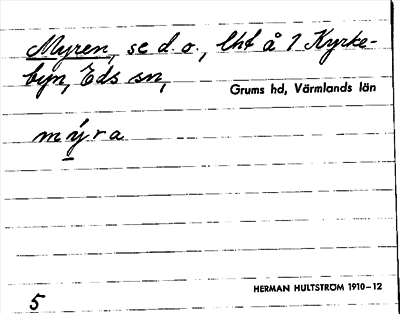 Myren, se d.o., lht å 1 Kyrke-
byn, Eds sn,
Grums hd, Värmlands län
mýra
HERMAN HULTSTRÖM 1910-12
5